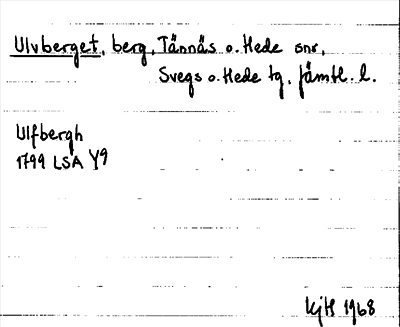 Ulvberget, berg, Tännäs o. Hede snr,
Svegs o. Hede tg, Jämtl. l.
Ulfbergh
1799 LSA Y9
KjH 1968